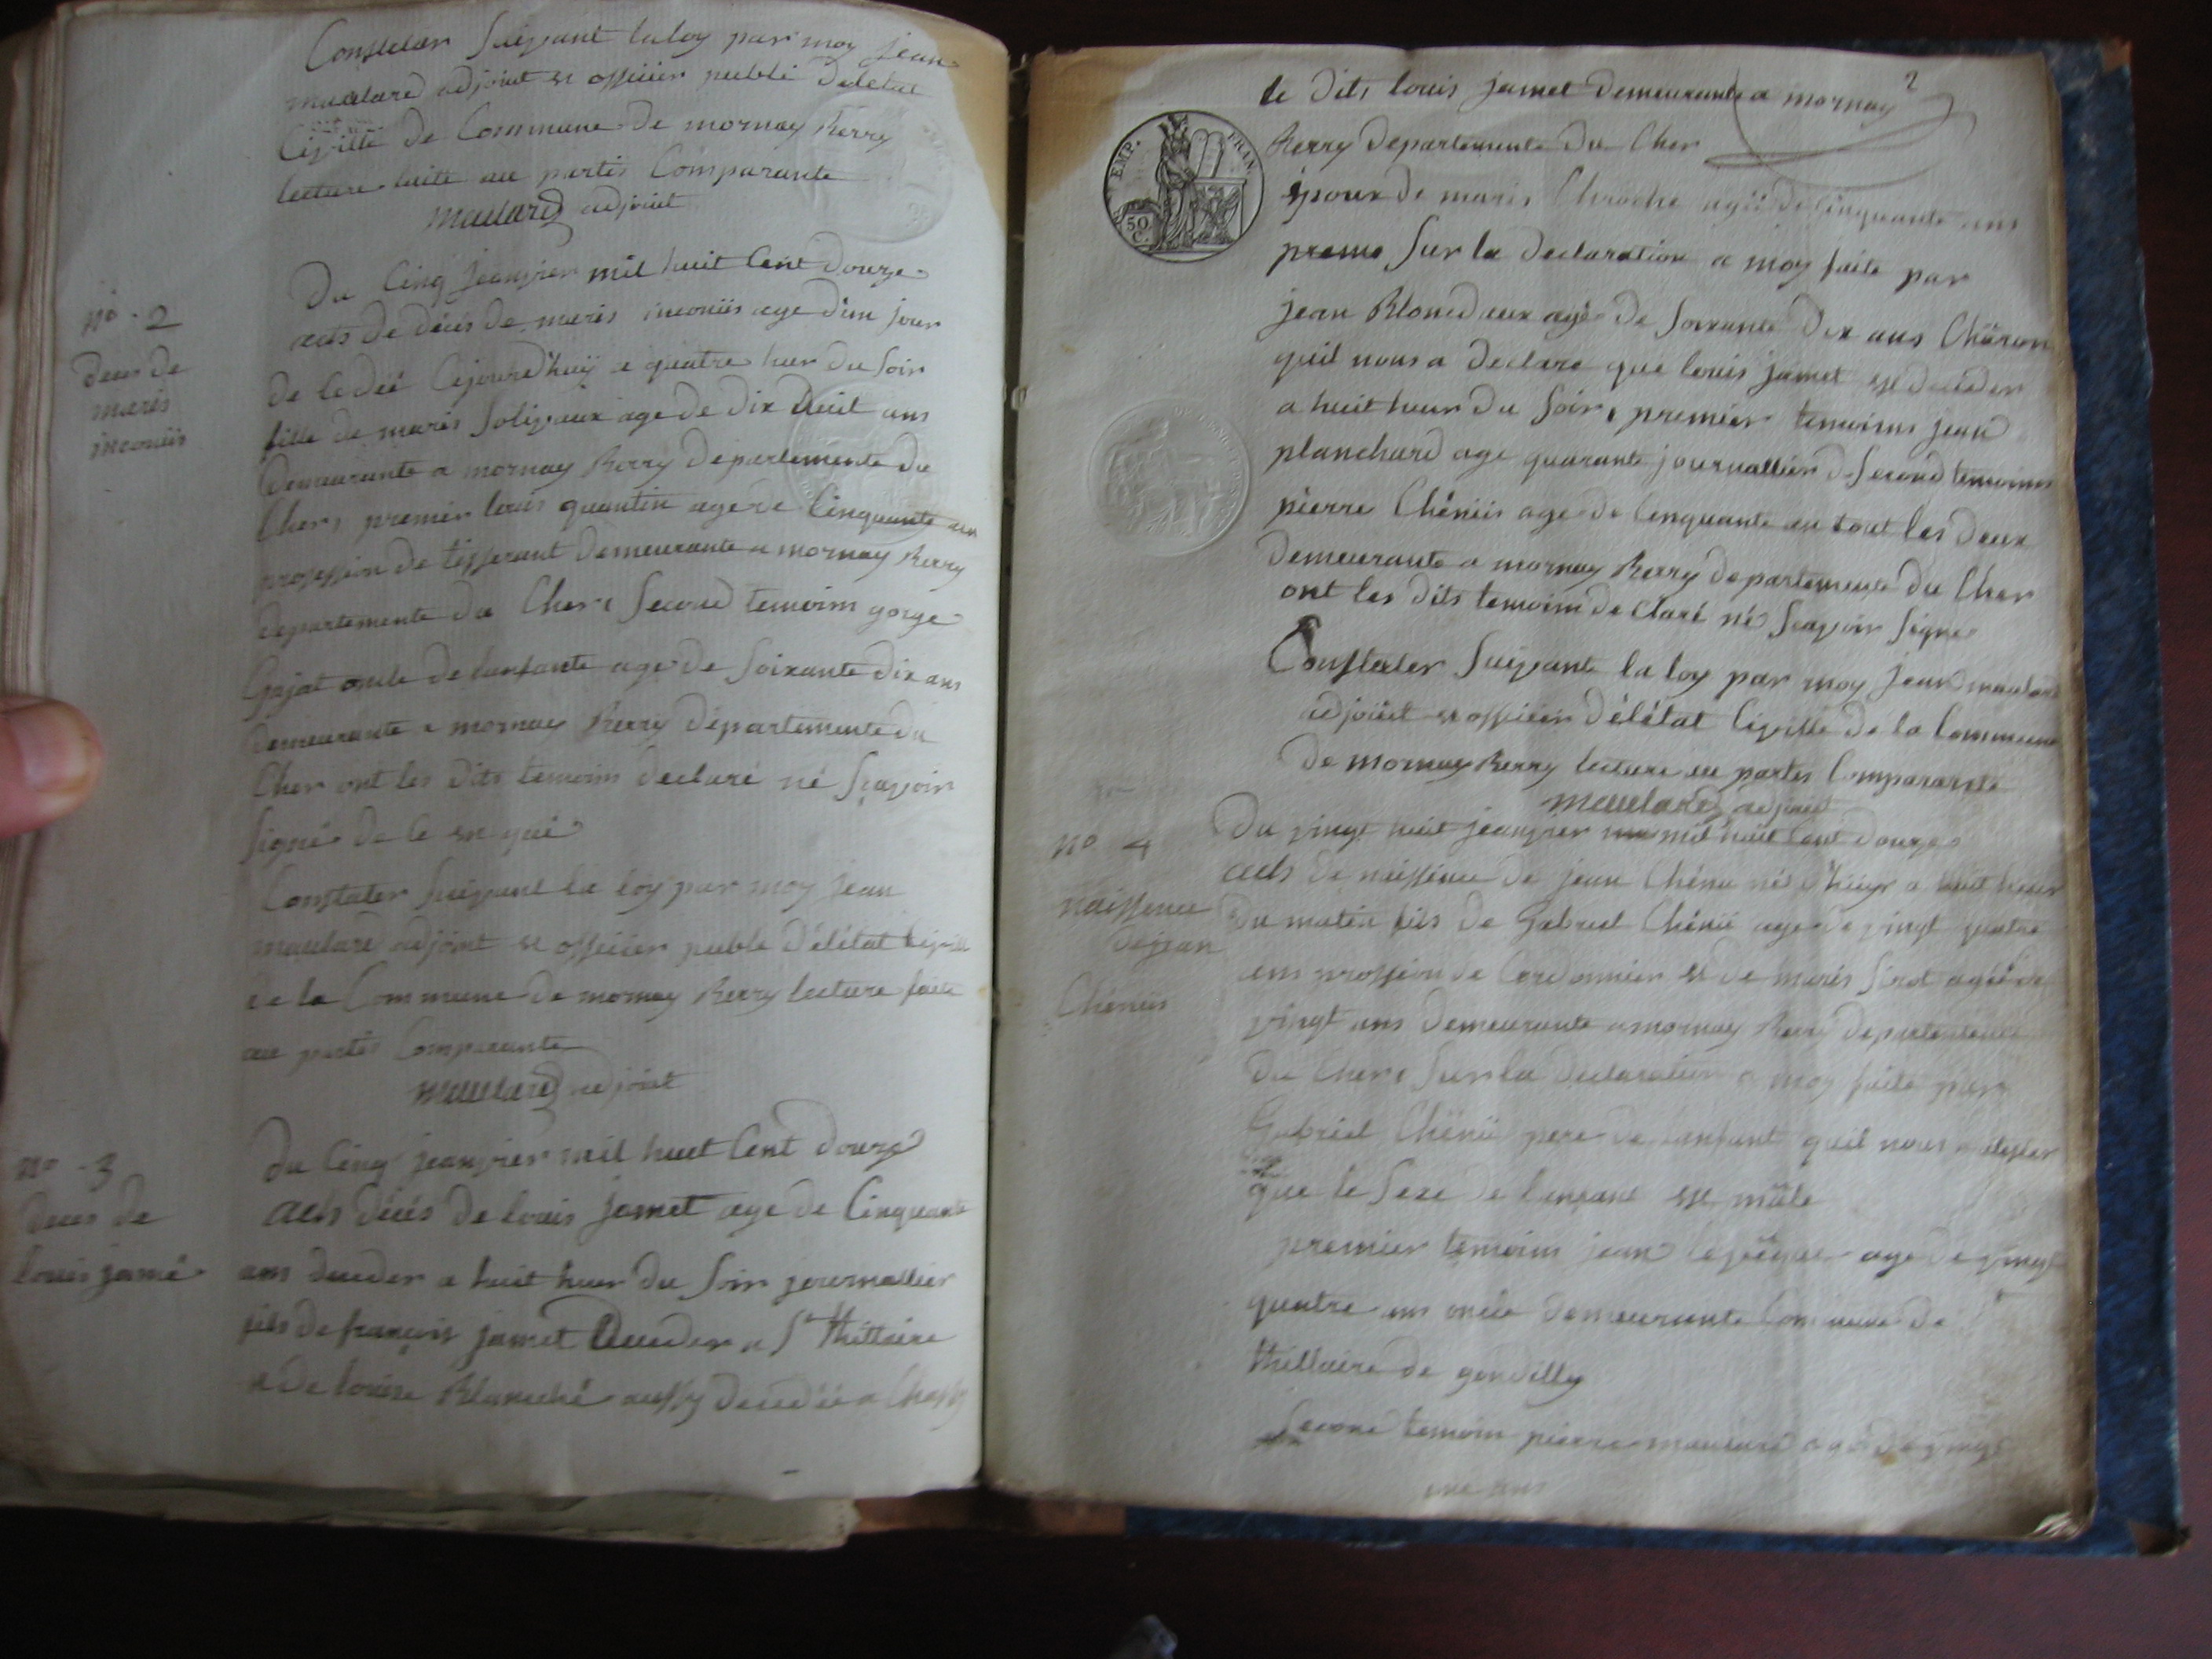 Constater Suivant la loy par moy jean
maulard adjoint et officier publi deletat
Civille de Commune de mornay Berry
lecture faite au partis Comparante
maulard adjoint
N° . 2
deces de
maris
inconüs
Du Cinq jeanvier mil huit Cent douze
acts de décés de maris inconüs age d'un jour
de le déé Cejourd'huÿ a quatre huer du Soir
fille de maris Solivaux age de dix huit ans
demeurante a mornay Berry departemente du
Cher, premier louis quantin age de Cinquante ans
profession de tisserant demeurante a mornay Berry
departemente du Cher, Second temoim gorge
Gajat oncle de lanfante age de Soixante dix ans
demeurante a mornay Berry departemente du
Cher ont les dits temoim declaré né Sçavoir
Signé de le en qui
Constater Suivant la loy par moy jean
maulard adjoint et officier public délétat Civille
de la Commune de mornay Berry lecture faite
au partis Comparante
maulard adjoint
N° . 3
deces de
louis jamé
du Cinq jeanvier mil huit Cent douze
acts décés de louis jamet age de Cinquante
ans deceder a huit huer du Soir journallier
fils de françois jamet deceder a St thillaire
et de louise Blanché aussy decedéé a
2
le dits louis jamet demeurante a mornay
Berry departemente du Cher
époux de maris agéé de Cinquante ans
preme Sur la declaration a moy faite par
jean Blondeux agé de Soixante dix ans Chäron
quil nous a declare que louis jamet est deceder
a huit huer du Soir, premier temoims jean
planchard age quarante journallier Second temoims
pierre Chénüs age de Cenquante en tout les deux
demeurante a mornay Berry departemente du Cher
ont les dits temoim declaré né Sçavoir Signe
Constater Suivante la loy par moy jean maulard
adjoint et officier délétat Civille de la Commune
de mornay Berry lecture au partis Comparante
maulard adjoint
N° 4
naissence
de jean
Chénüs
Du vingt huit jeanvier mil huit Cent douze
acts de naissence de jean Chénu né d'hiéyr a huit heur
du matin fils de Gabriel Chénü age de vingt quatre
ans profession de Cordonnier et de maris agéé de
vingt ans demeurante a mornay Berry departemente
du Cher, Sur la declaration a moy faite par
Gabriel Chénü pere de lanfant quil nous
que le Sexe de lenfant est mâle
premier temoims jean agé de vingt
quatre ans oncle demeurante Commune de St
thillaire de gondilly
Second temoim pierre maulard agé de vingt
une ans
EMP. FRAN
50 C.